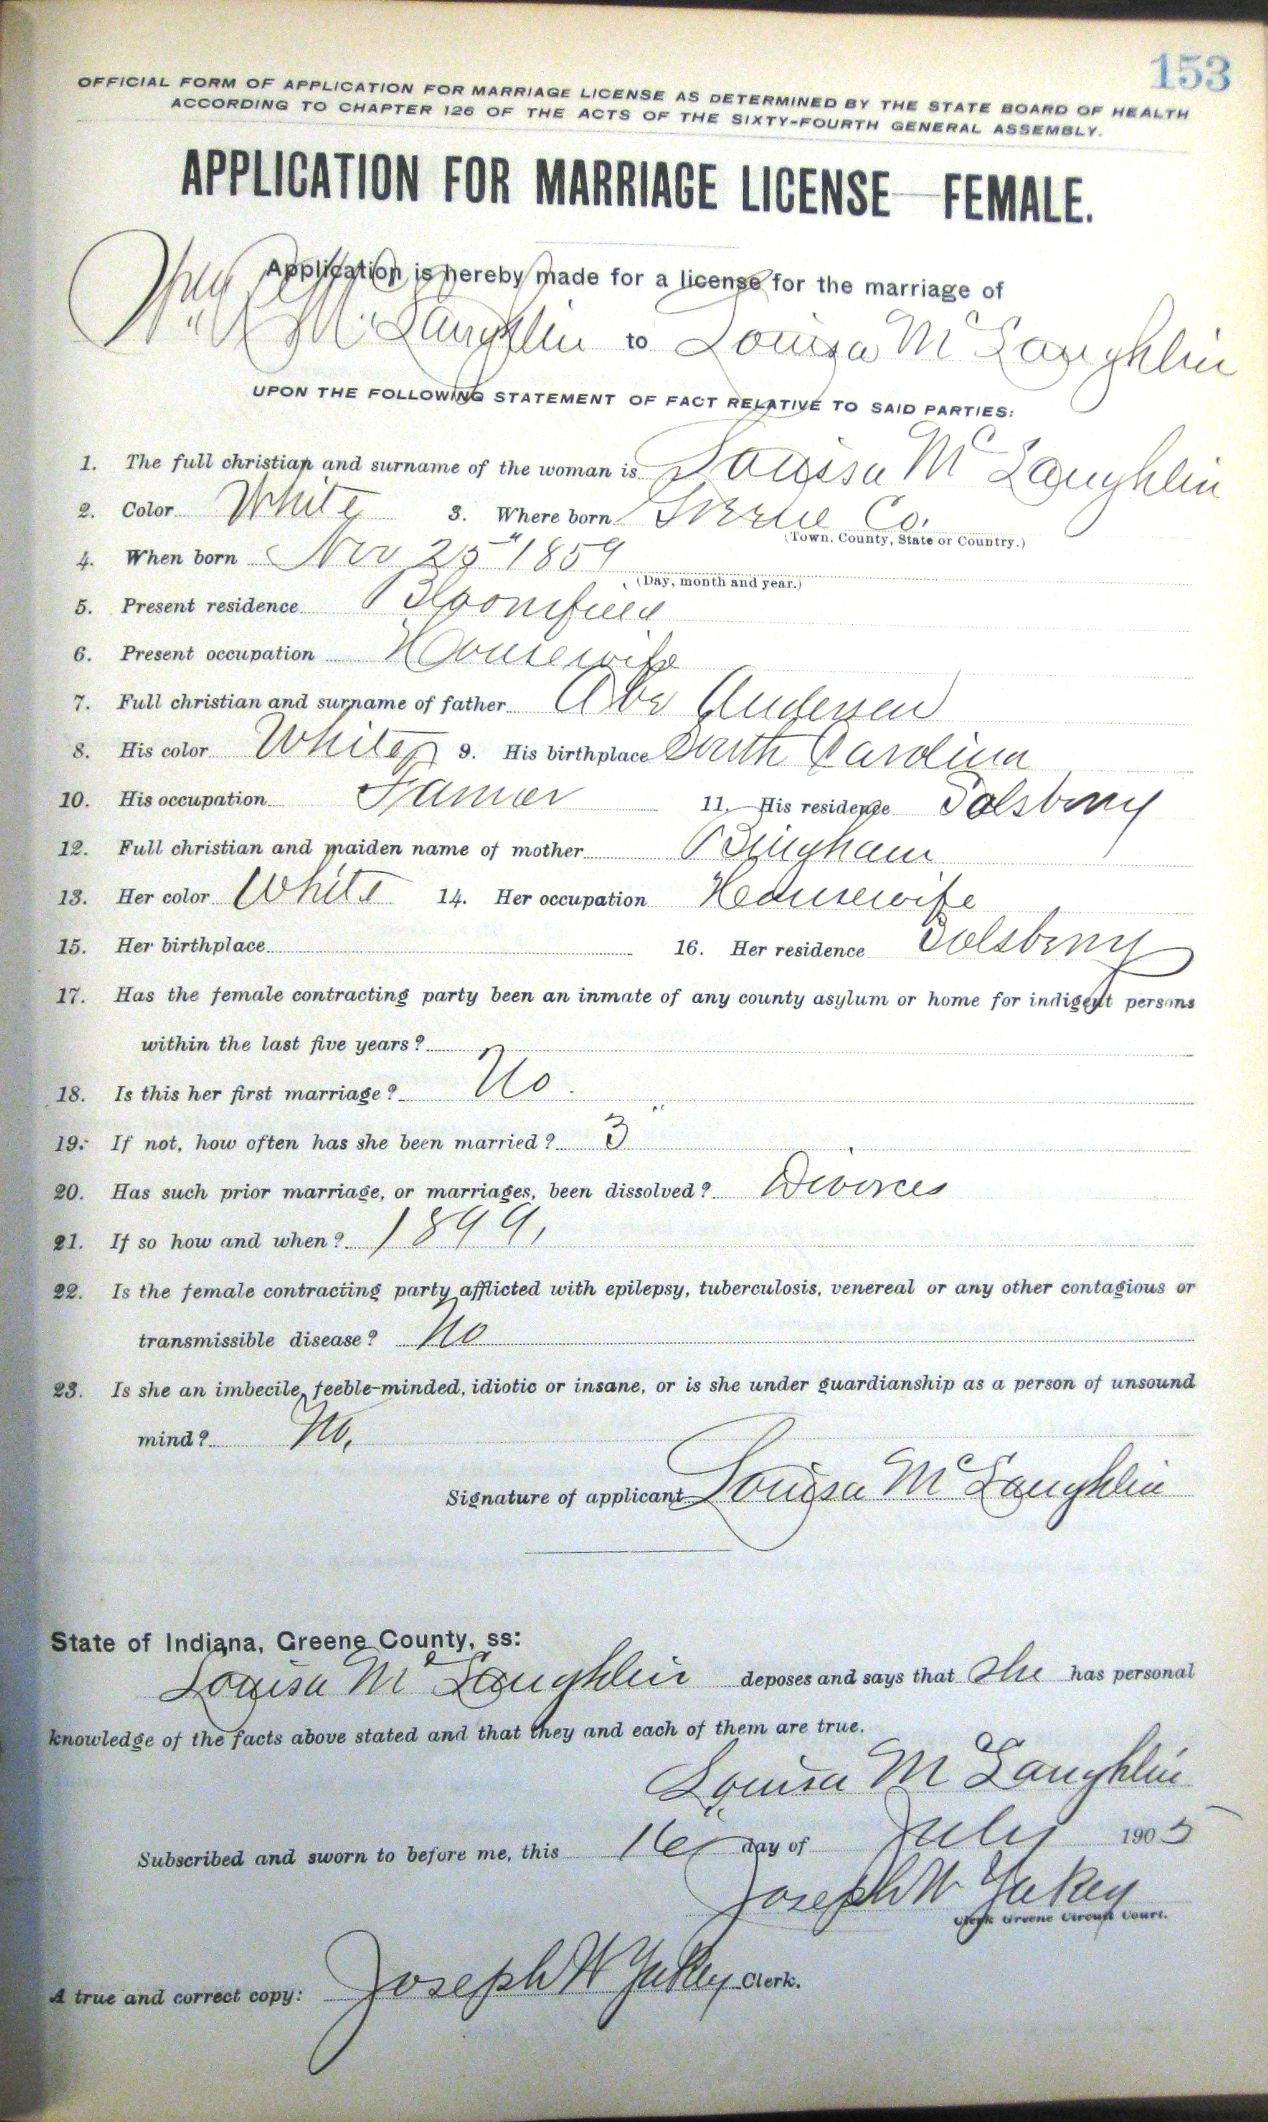 153
OFFICIAL FORM OF APPLICATION FOR MARRIAGE LICENSE AS DETERMINED BY THE STATE BOARD OF HEALTH
ACCORDING TO CHAPTER 126 OF THE ACTS OF THE SIXTY-FOURTH GENERAL ASSEMBLY.
APPLICATION FOR MARRIAGE LICENSE—FEMALE.
Application is hereby made for a license for the marriage of
McLaughlin to Louisa McLaughlin
UPON THE FOLLOWING STATEMENT OF FACT RELATIVE TO SAID PARTIES:
1. The full christian and surname of the woman is Louisa McLaughlin
2. Color White 3. Where born Greene Co.
(Town, County, State or Country.)
4. When born Nov 25" 1859
(Day, month and year.)
5. Present residence Bloomfield
6. Present occupation Housewife
7. Full christian and surname of father Abe Anderson
8. His color White 9. His birthplace South Carolina
10. His occupation Farmer 11. His residence Solsberry
12. Full christian and maiden name of mother Bingham
13. Her color White 14. Her occupation Housewife
15. Her birthplace 16. Her residence Solsberry
17. Has the female contracting party been an inmate of any county asylum or home for indigent persons
within the last five years?
18. Is this her first marriage? No.
19. If not, how often has she been married? 3"
20. Has such prior marriage, or marriages, been dissolved? Divorces
21. If so how and when? 1899,
22. Is the female contracting party afflicted with epilepsy, tuberculosis, venereal or any other contagious or
transmissible disease? No
23. Is she an imbecile, feeble-minded, idiotic or insane, or is she under guardianship as a person of unsound
mind? No,
Signature of applicant Louisa McLaughlin
State of Indiana, Greene County, ss:
Louisa McLaughlin deposes and says that she has personal
knowledge of the facts above stated and that they and each of them are true.
Louisa McLaughlin
Subscribed and sworn to before me, this 16" day of July 1905
Joseph W Yakey
Clerk Greene Circuit Court.
A true and correct copy: Joseph W Yakey Clerk.